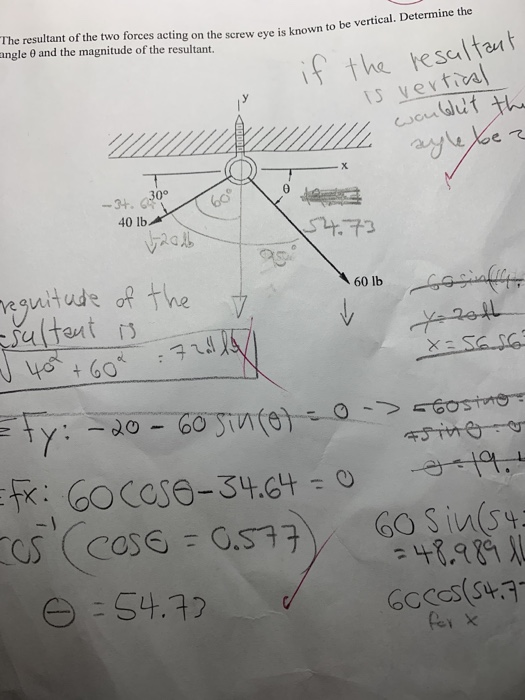 The resultant of the two forces acting on the screw eye is known to be vertical. Determine the
angle θ and the magnitude of the resultant.
if the resultant
is vertical
wouldn't the
angle be
y
x
30°
60°
θ
40 lb
↓20lb
54.73
95°
60 lb
↓
magnitude of the
resultant is
√40² + 60² = 72.11 lb
60sin(19.
y = 20 lb
x = 56.56
Fy: -20 - 60 sin(θ) = 0 ->
-60sinθ =
θ = 19.
Fx: 60cosθ - 34.64 = 0
cos⁻¹(cosθ = 0.577)
θ = 54.73
60 sin(54.
= 48.989 lb
60cos(54.7
for x